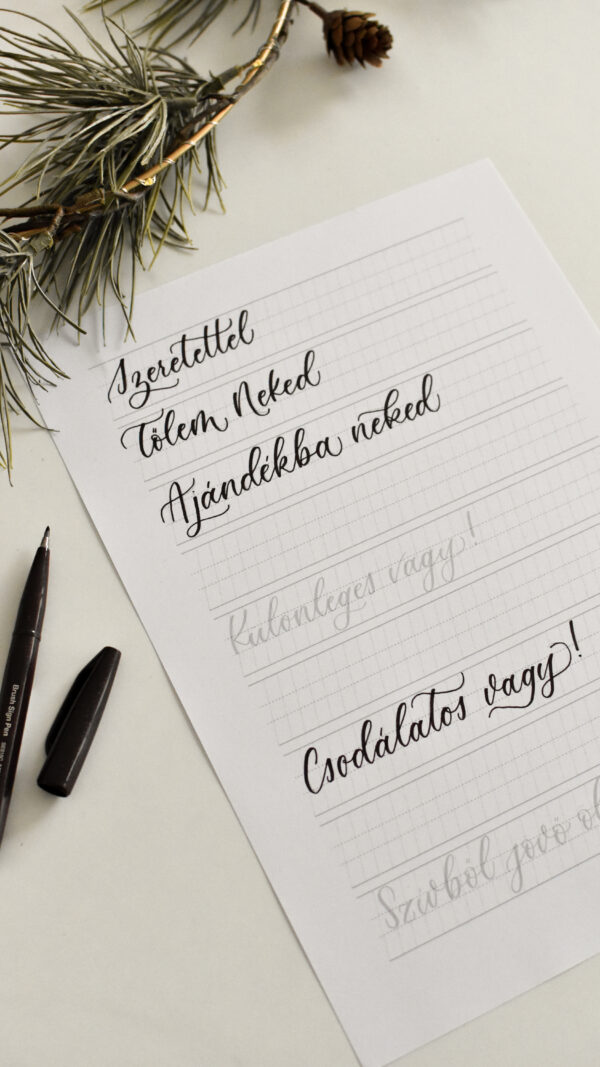 Szeretettel
Tőlem Neked
Ajándékba neked
Kulonleges vagy!
Csodálatos vagy!
Szívből jövő
Brush Sign Pen